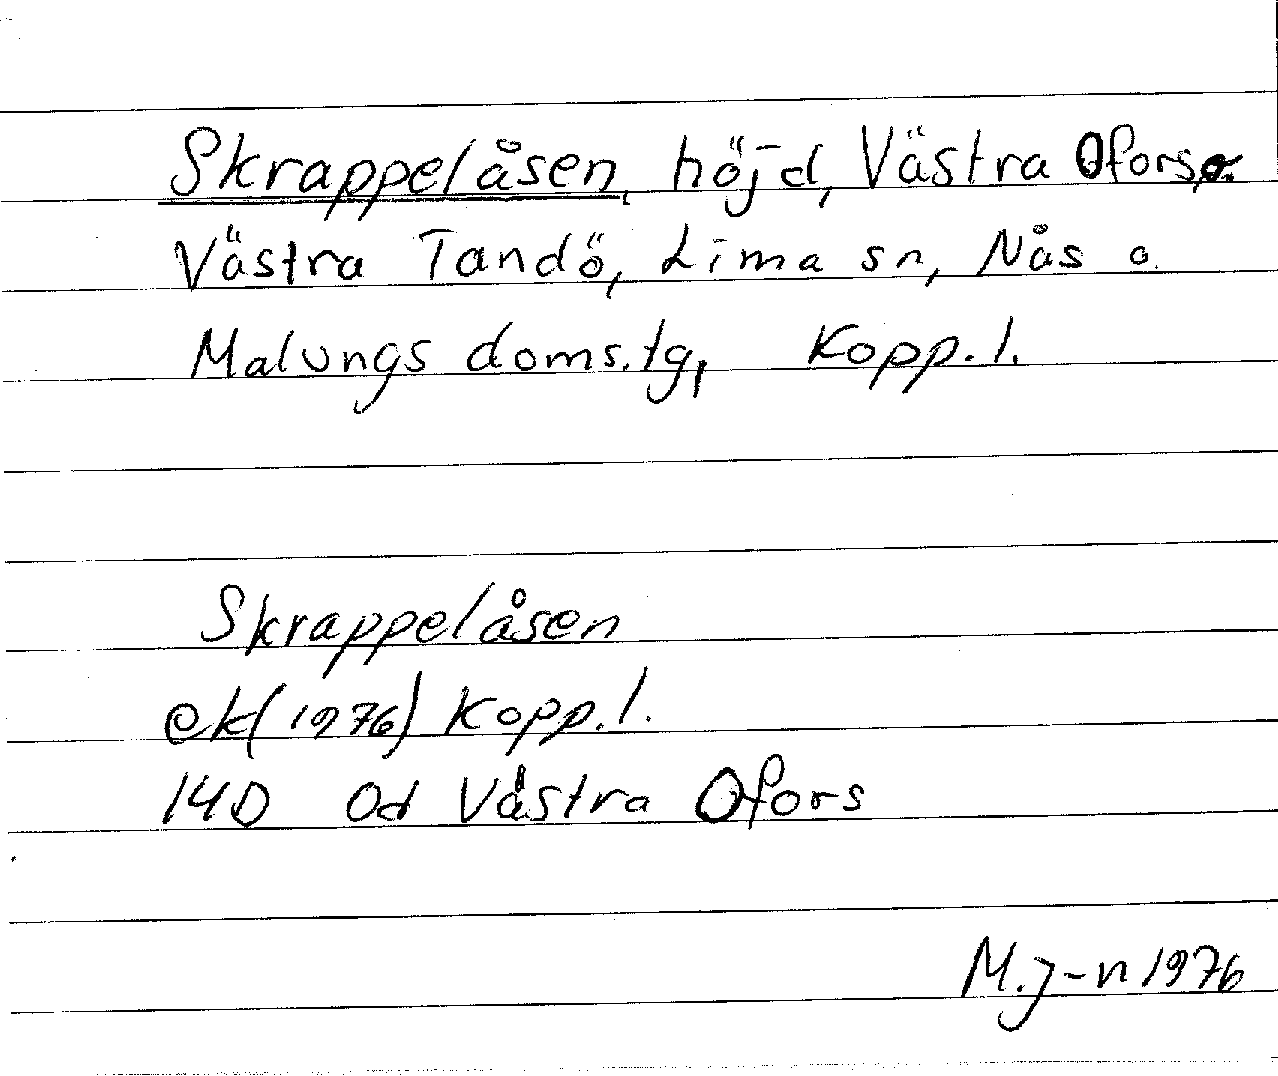 Skrappelåsen, höjd, Västra Ofors o.
Västra Tandö, Lima sn, Nås o.
Malungs doms.tg, Kopp.l.
Skrappelåsen
ek(1976) Kopp.l.
14D Od Västra Ofors
M.J-n 1976